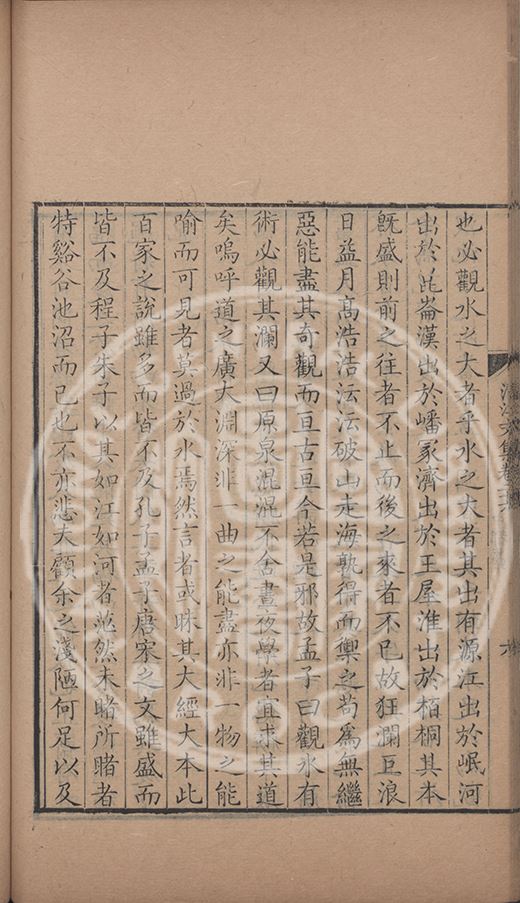 也必觀水之大者乎水之大者其出有源江出於岷河
出於崑崙漢出於嶓冢濟出於王屋淮出於栢桐其本
旣盛則前之往者不止而後之來者不已故狂瀾巨浪
日益月高浩浩沄沄破山走海孰得而禦之苟爲無繼
惡能盡其奇觀而亘古亘今若是邪故孟子曰觀水有
術必觀其瀾又曰原泉混混不舍晝夜學者宜求其道
矣嗚呼道之廣大淵深非一曲之能盡亦非一物之能
喻而可見者莫過於水焉然言者或昧其大經大本此
百家之說雖多而皆不及孔子孟子唐宋之文雖盛而
皆不及程子朱子以其如江如河者茫然未睹所睹者
特谿谷池沼而已也不亦悲夫顧余之淺陋何足以及